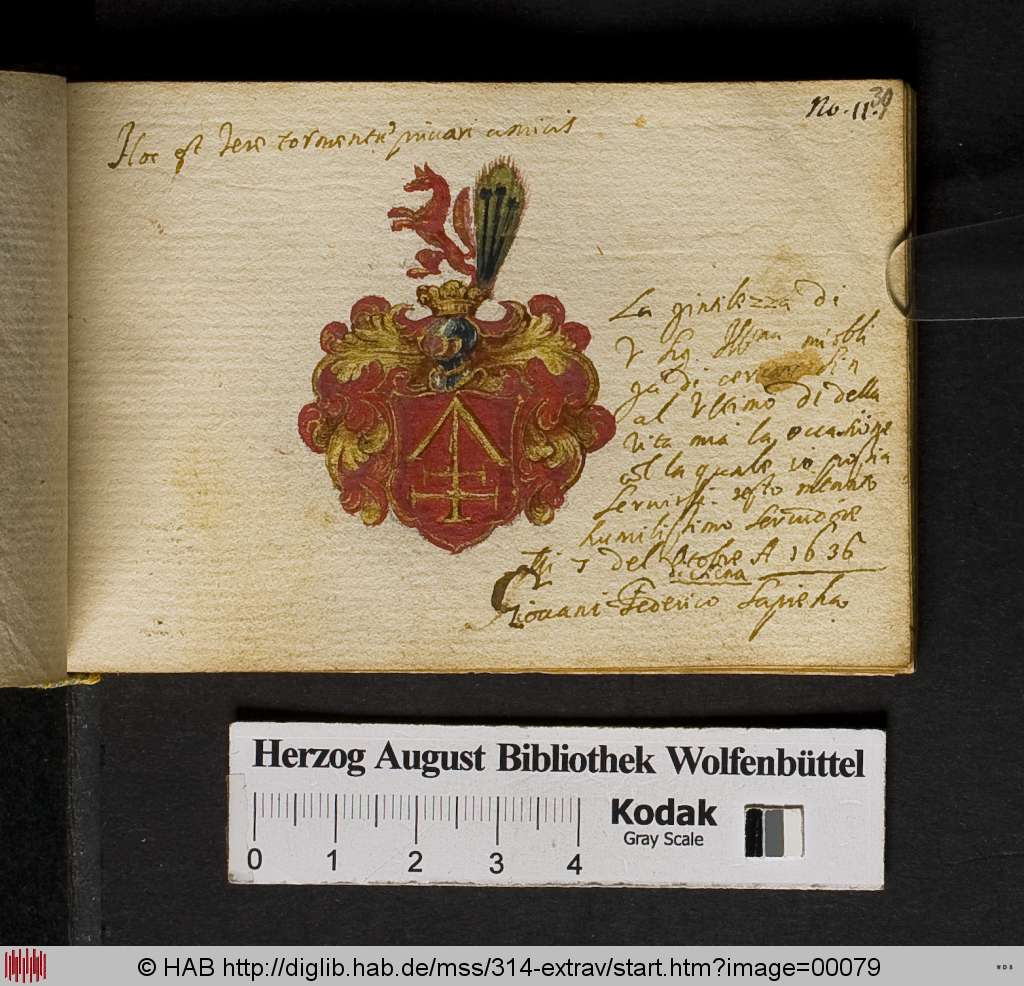 No. 11.
39
Hoc est vere tormentum privari amicis
La gintilezza di
V Sig. Illma mi obli
ga di cercar sin
al Vltimo di della
vita mia la occasione
col la quale io possia
servirla. resto
humilissimo servidore
Di 7 del Octobre A 1636
Giovani Federico Sapieha
Herzog August Bibliothek Wolfenbüttel
Kodak
Gray Scale
0 1 2 3 4
© HAB http://diglib.hab.de/mss/314-extrav/start.htm?image=00079